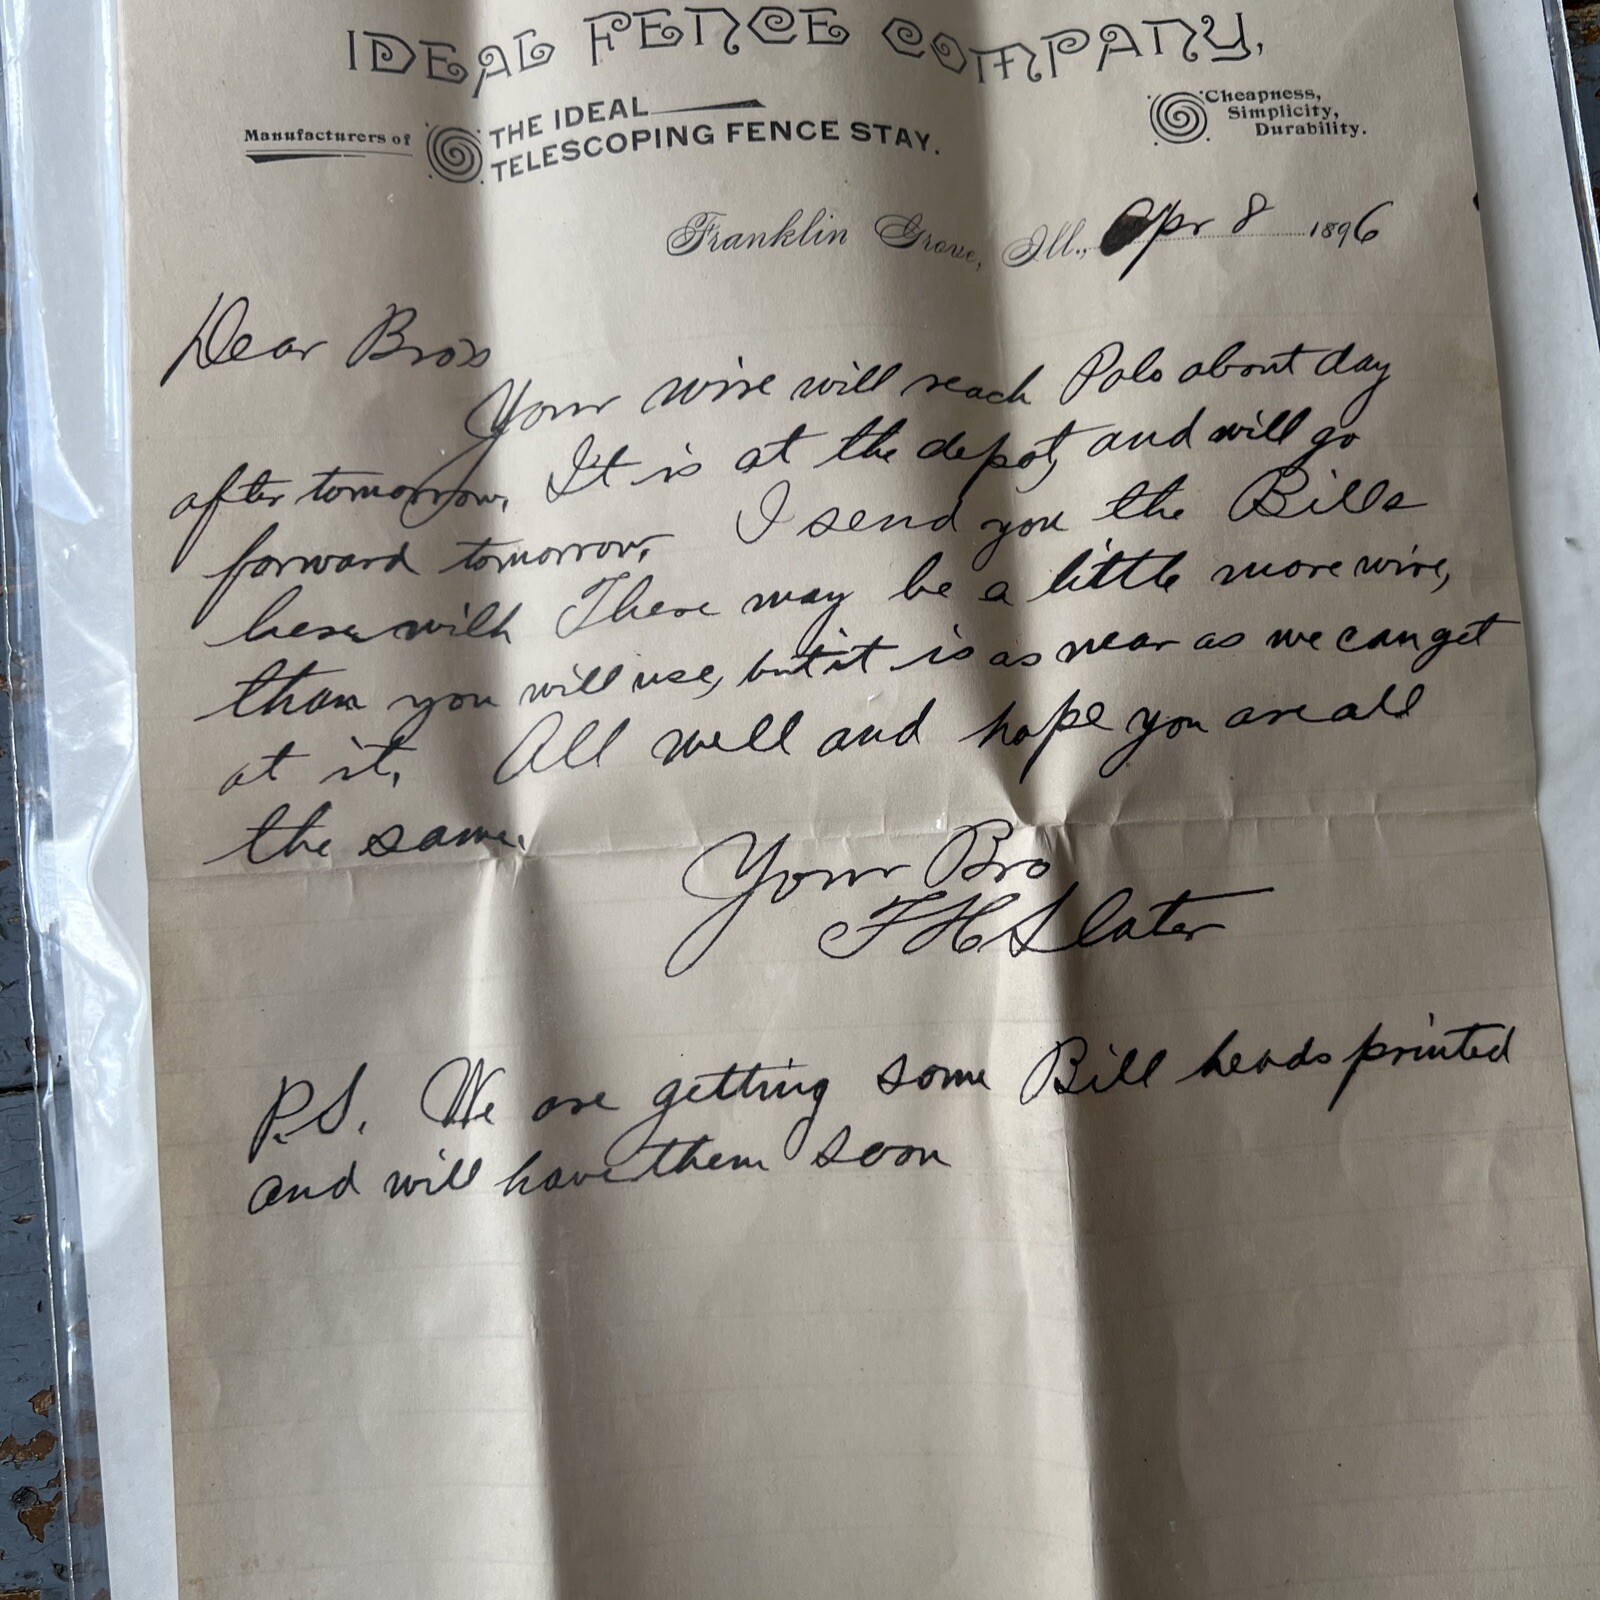 IDEAL FENCE COMPANY,
Manufacturers of
THE IDEAL
TELESCOPING FENCE STAY.
Cheapness,
Simplicity,
Durability.
Franklin Grove, Ill., Apr 8 1896
Dear Bros
Your wire will reach Polo about day
after tomorrow. It is at the depot, and will go
forward tomorrow. I send you the Bills
herewith There may be a little more wire,
than you will use, but it is as near as we can get
at it. All well and hope you are all
the same.
Your Bro
F H Slater
P.S. We are getting some Bill heads printed
and will have them soon